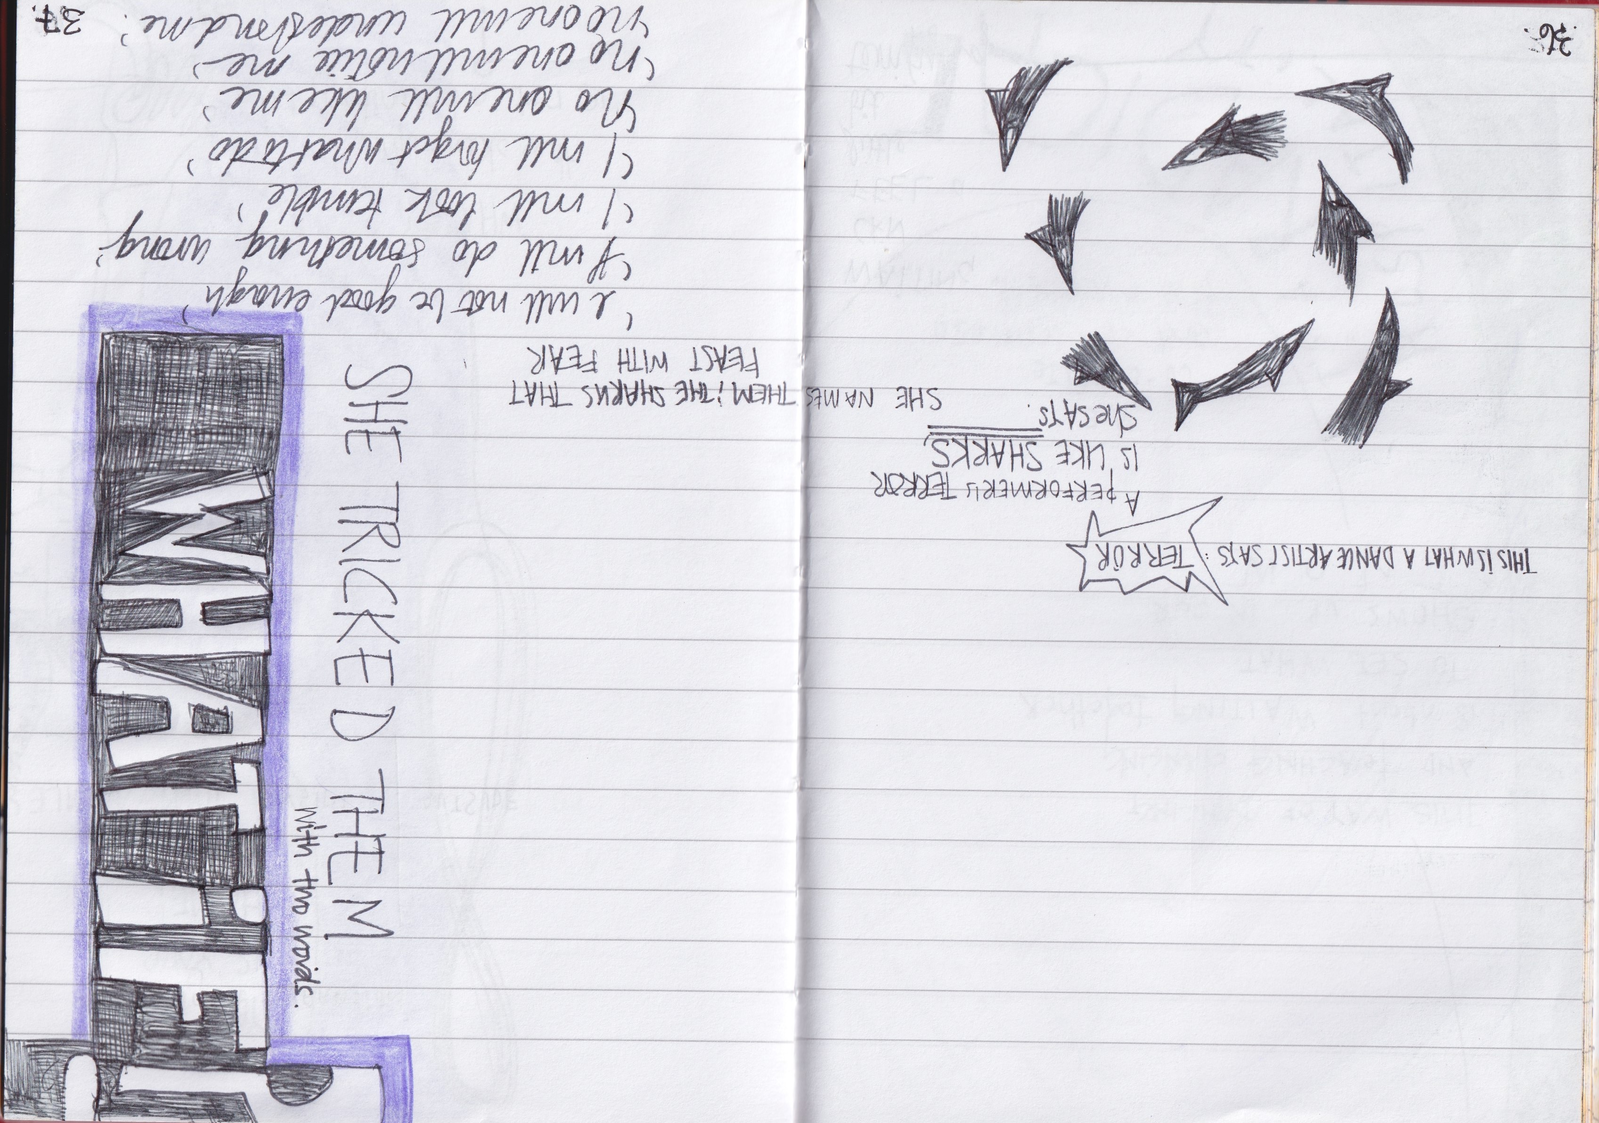 THIS IS WHAT A DANCE ARTIST SAYS: TERROR
A PERFORMER'S TERROR
IS LIKE SHARKS,
She SAYS.
SHE NAMES THEM; THE SHARKS THAT
FEAST WITH FEAR
'I will not be good enough'
'I will do something wrong'
'I will look terrible'
'I will forget what to do'
'No one will like me'
'no one will notice me'
'no one will understand me'
SHE TRICKED THEM
with two words.
WHAT iF
36.
37.